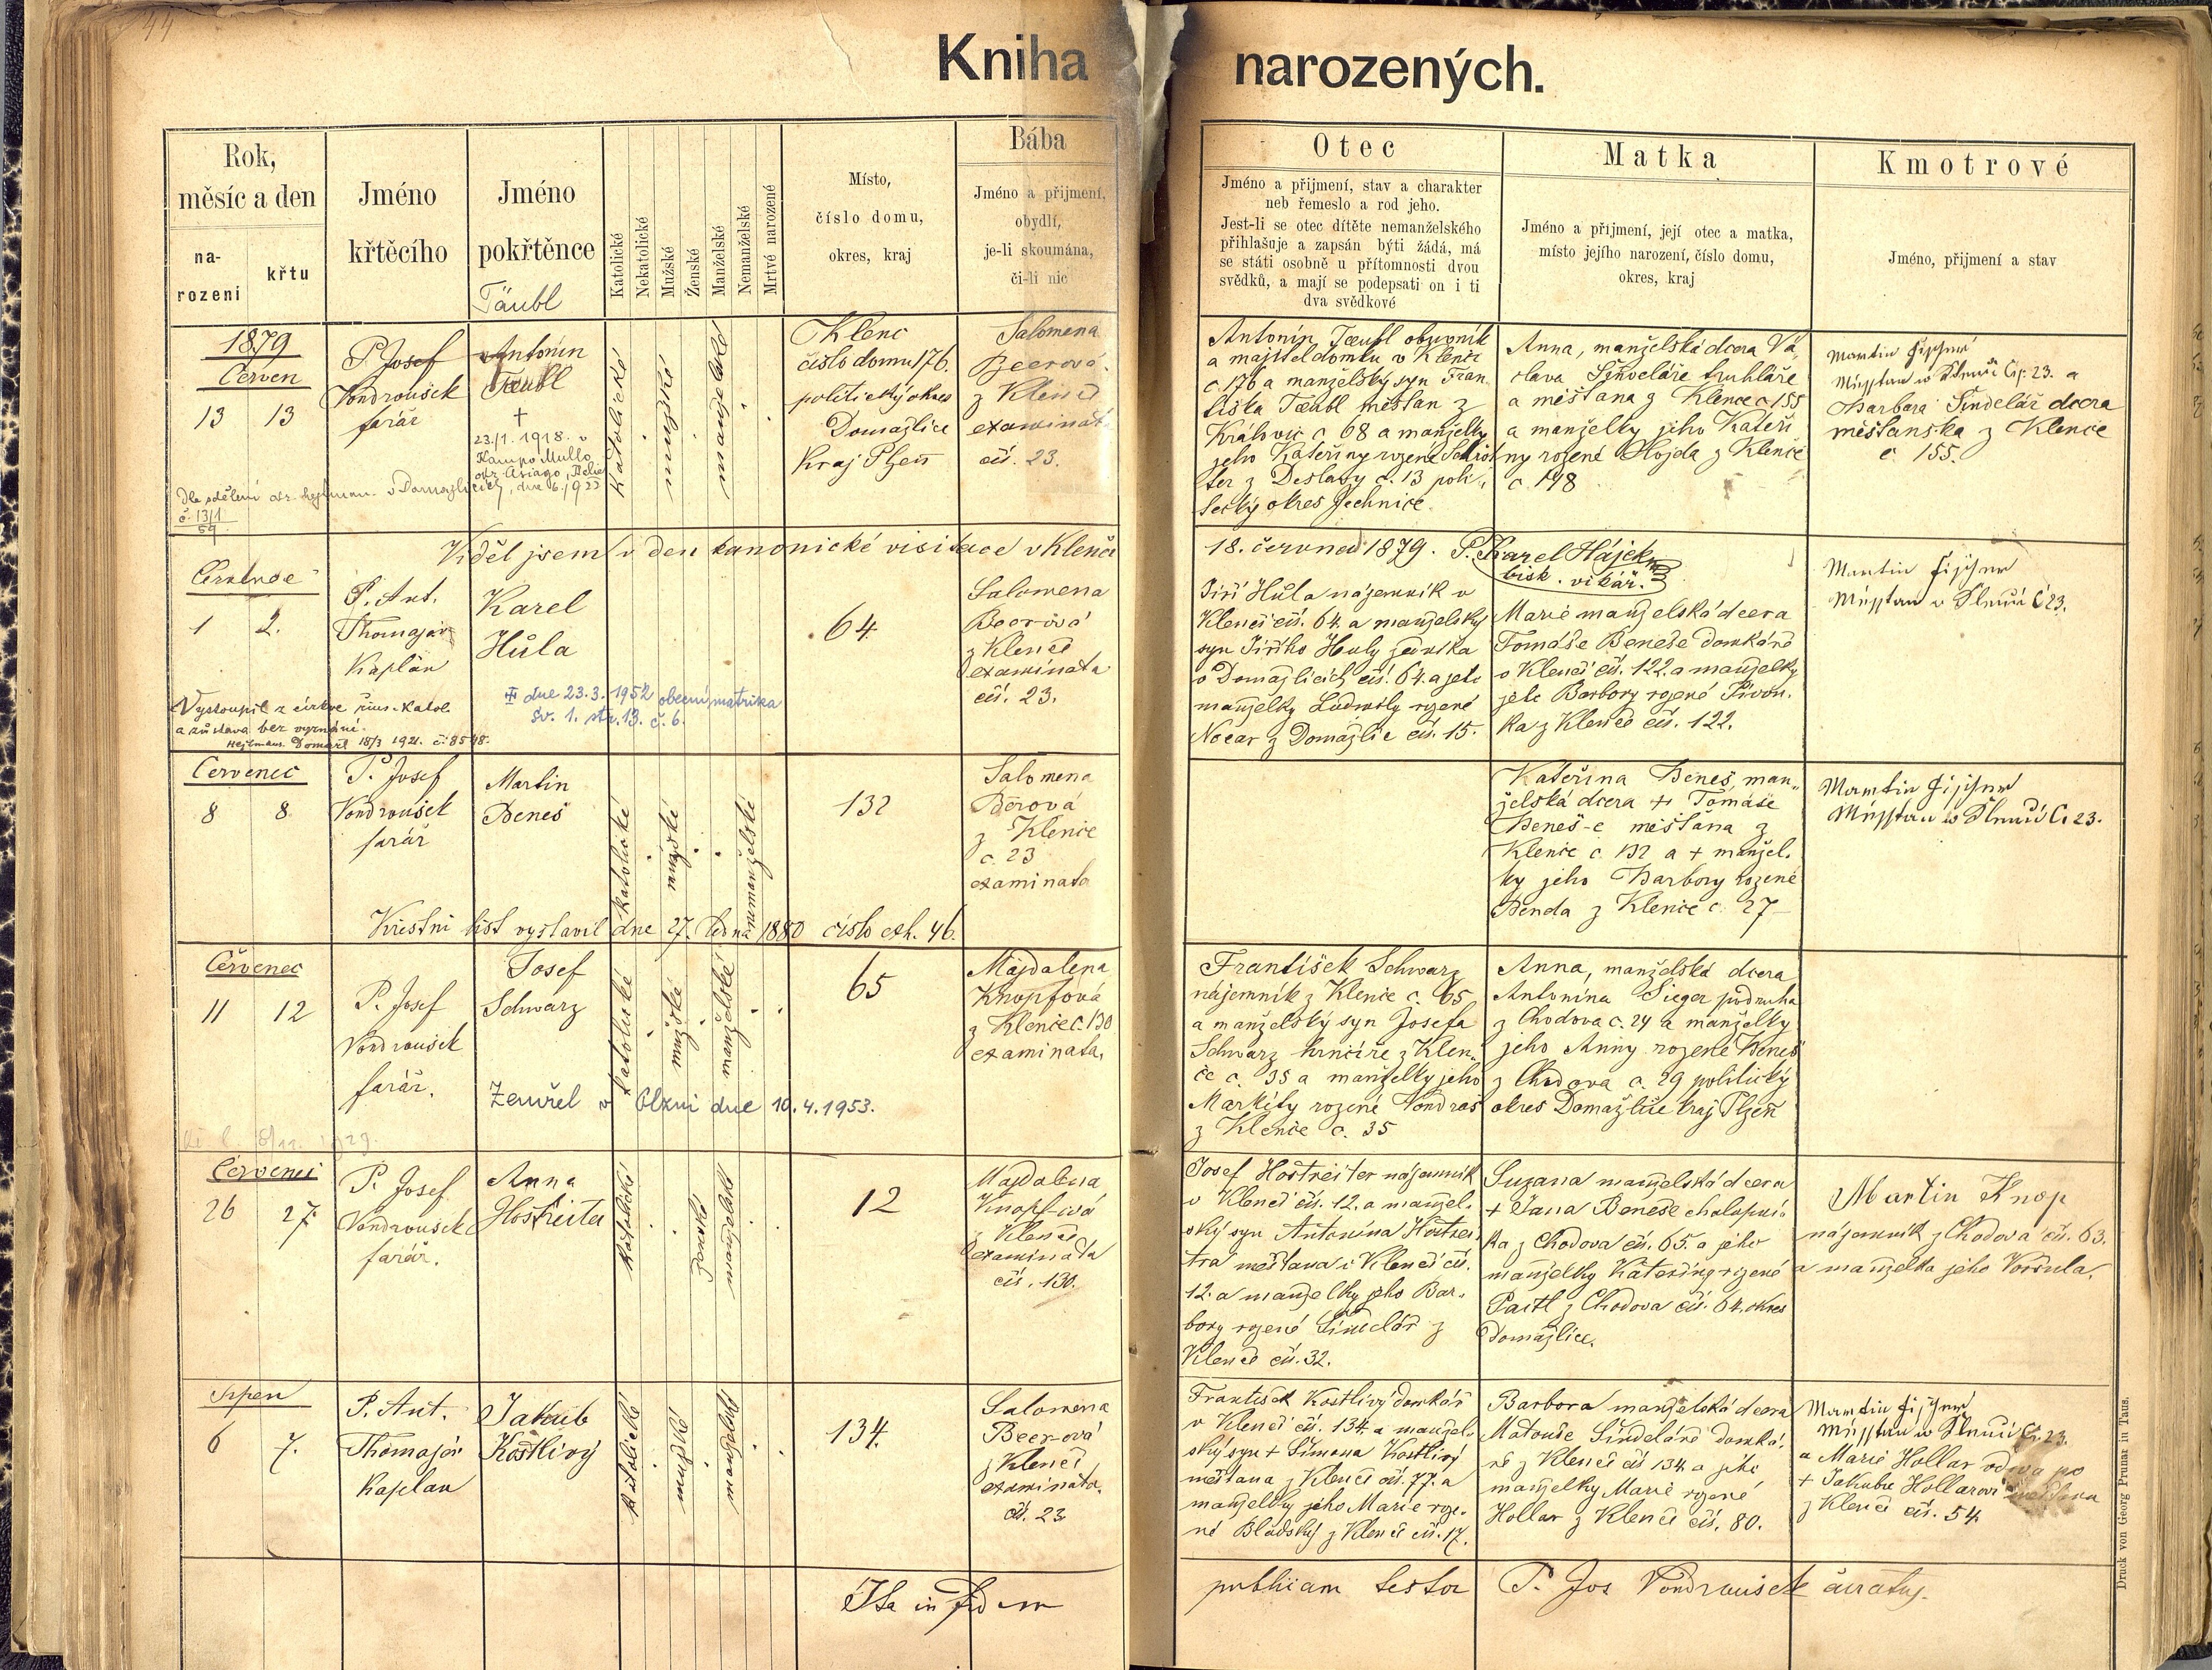 44
Kniha narozených.
Rok,
měsíc a den
na-
rozeni
křtu
Jméno
křtěcího
Jméno
pokřtěnce
Täubl
Katolické
Nekatolické
Mužské
Ženské
Manželské
Nemanželské
Mrtvé narozené
Místo,
číslo domu,
okres, kraj
Bába
Jméno a přijmení,
obydlí,
je-li skoumána,
či-li nic
Otec
Jméno a přijmení, stav a charakter
neb řemeslo a rod jeho.
Jest-li se otec dítěte nemanželského
přihlašuje a zapsán býti žádá, má
se státi osobně u přítomnosti dvou
svědků, a mají se podepsati on i ti
dva svědkové
Matka
Jméno a přijmení, její otec a matka,
místo jejího narození, číslo domu,
okres, kraj
Kmotrové
Jméno, přijmení a stav
1879
Červen
13 13
P. Josef
Vondroušek
farář
Antonín
Taeubl
†
23/1. 1918. v
Kampo Mullo
okr. Asiago, Italie
Dle sdělení okr. hejtman. v Domažlicích, dne 6./1 923
č. 13/1
59.
katolické
mužské
manželské
Klenč
číslo domu 176.
politický okres
Domažlice
kraj Plzeň
Salomena
Beerová
z Klenče
examinat
čís. 23.
Antonín Taeubl obuvník
a majitel domku v Klenči
č. 176 a manželský syn Fran
tiška Taeubl měšťan z
Královic č 68 a manželky
jeho Kateřiny rozené Schrö
ter z Deslavy č. 13 poli
tický okres Jechnice.
Anna, manželská dcera Vá,
clava Šindeláře truhláře
a měšťana z Klenče č 155
a manželky jeho Kateři
ny rozené Hojda z Klenče
č. 198
Martin Fischer
čís. 23. a
Barbara Šindelář dcera
měšťanska z Klenče
č. 155.
Viděl jsem v den kanonické visitace v Klenči
18. června 1879. P. Karel Hájek
bisk. vikář.
Července
1 2.
P. Ant.
Thomajer
Kaplan
Karel
Hůla
Vystoupil z církve řím. katol.
a zůstává bez vyznání.
Hejtman. Domažl 18/3 1921. č. 8548.
† dne 23.3.1952 obecní matrika
sv. 1. str. 13. č. 6.
64
Salomena
Beerová
z Klenče
examinata
čís. 23.
Jiří Hůla nájemník v
Klenči čís. 64. a manželský
syn Jiřího Huly
v Domažlicích čís. 64. a jeho
manželky Ludmily rozené
Nocar z Domažlic čís. 15.
Marie manželská dcera
Tomáše Beneše domkáře
v Klenči čís. 122. a manželky
jeho Barbory rozené Pivoň.
ka z Klenče čís. 122.
Martin Fischer
č 23.
Červenec
8 8
P. Josef
Vondroušek
farář
Martin
Beneš
katolické
mužské
nemanželské
132
Salomena
Bérová
z Klenče
č. 23
examinata
Kateřina Beneš, man„
želská dcera + Tomáše
Beneš-e měšťana z
Klenče č. 132 a + manžel.
ky jeho Barbory rozené
Benda z Klenče č. 27
Martin Fischer
č. 23.
Křestní list vystavil dne 27. ledna 1880 číslo exh. 46.
Červenec
11 12
P. Josef
Vondroušek
farář.
Josef
Schwarz
Zemřel v Plzni dne 10.4.1953.
katolické
mužské
manželské
65
Majdalena
Knopfová
z Klenče č. 130
examinata,
František Schwarz
nájemník z Klenče č. 65
a manželský syn Josefa
Schwarz hrnčíře z Klen„
če č. 35 a manželky jeho
Markéty rozené Vondraš
z Klenče č. 35
Anna, manželská dcera
Antonína Sieger podruha
z Chodova č. 24 a manželky
jeho Anny rozené Beneš
z Chodova č. 29 politický
okres Domažlice kraj Plzeň
Červenec
26 27.
P. Josef
Vondroušek
farář.
Anna
Hostreiter
katolické
ženské
manželské
12
Majdalena
Knopfová
z Klenče
examinata
čís. 130.
Josef Hostreiter nájemník
v Klenči čís. 12. a manžel.
ský syn Antonína Hostrei
tra měšťana v Klenči čís.
12. a manželky jeho Bar.
bory rozené Šindelář z
Klenče čís. 32.
Suzana manželská dcera
+ Jana Beneše chalupní
ka z Chodova čís. 65. a jeho
manželky Kateřiny rozené
Paitl z Chodova čís. 64. okres
Domažlice.
Martin Knop
nájemník z Chodova čís. 63.
a manželka jeho Voršula.
Srpen
6 7.
P. Ant.
Thomajer
Kaplan
Jakub
Kostlivý
katolické
mužské
manželské
134.
Salomena
Beerová
z Klenče
examinata.
čís. 23
František Kostlivý domkář
v Klenči čís. 134. a manžel.
ský syn + Šimona Kostlivý
měšťana z Klenče čís. 77. a
manželky jeho Marie roze.
né Bladský z Klenče čís. 17.
Barbora manželská dcera
Matouše Šindeláře domká.
ře z Klenče čís 134. a jeho
manželky Marie rozené
Hollar z Klenče čís. 80.
Martin Fischer
č. 23.
a Marie Hollar vdova po
+ Jakubu Hollarovi
z Klenče čís. 54.
Ita in fidem
publicam testor P. Jos Vondroušek curatus.
Druck von Georg Prunar in Taus.